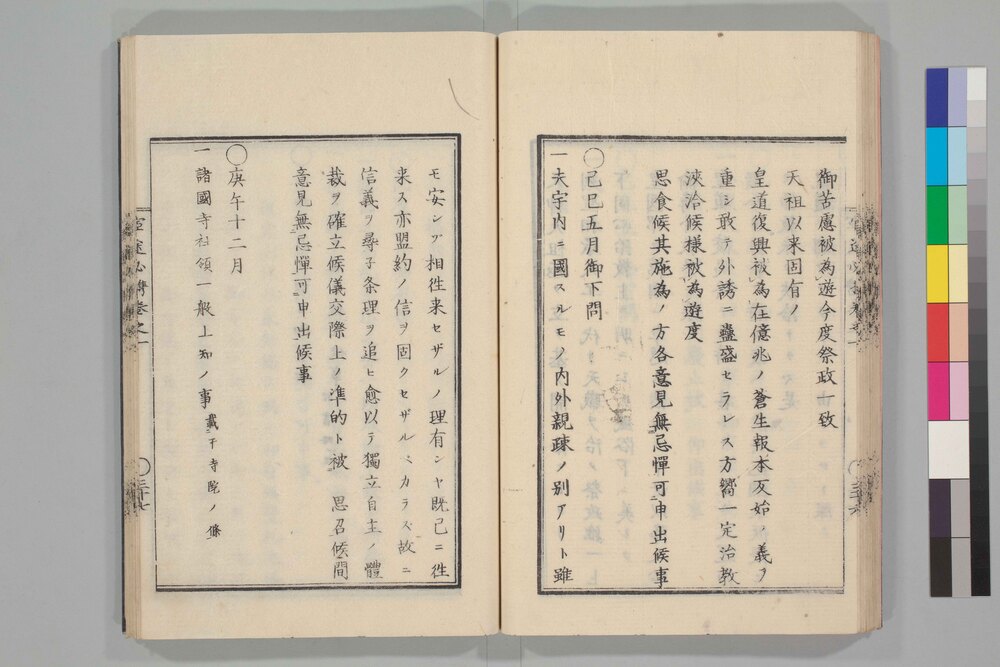 御苦慮被為遊今度祭政一致
天祖以来固有ノ
皇道復興被為在億兆ノ蒼生報本反始ノ義ヲ
重シ敢テ外誘ニ蠱盛セラレス方嚮一定治教
浹洽候樣被為遊度
思食候其施為ノ方各意見無忌憚可申出候事
〇己巳五月御下問
一夫宇内ニ國スルモノ内外親疎ノ別アリト雖
モ安ンゾ相徃来セザルノ理有ンヤ既已ニ徃
来ス亦盟約ノ信ヲ固クセザルベカラズ故ニ
信義ヲ尋子条理ヲ追ヒ愈以テ獨立自主ノ體
裁ヲ確立候儀交際上ノ準的ト被 思召候間
意見無忌憚可申出候事
〇庚午十二月
一諸國寺社領一般上知ノ事 載于寺院ノ條